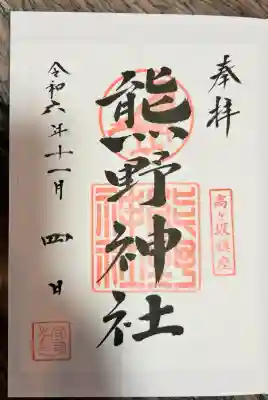 奉拝
高ヶ坂鎮座
熊野神社
令和六年十一月四日